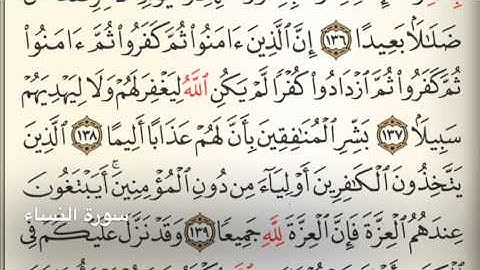 ضَلَٰلَۢا بَعِيدًا ١٣٦ إِنَّ ٱلَّذِينَ ءَامَنُواْ ثُمَّ كَفَرُواْ ثُمَّ ءَامَنُواْ
ثُمَّ كَفَرُواْ ثُمَّ ٱزۡدَادُواْ كُفۡرٗا لَّمۡ يَكُنِ ٱللَّهُ لِيَغۡفِرَ لَهُمۡ وَلَا لِيَهۡدِيَهُمۡ
سَبِيلَۢا ١٣٧ بَشِّرِ ٱلۡمُنَٰفِقِينَ بِأَنَّ لَهُمۡ عَذَابًا أَلِيمًا ١٣٨ ٱلَّذِينَ
يَتَّخِذُونَ ٱلۡكَٰفِرِينَ أَوۡلِيَآءَ مِن دُونِ ٱلۡمُؤۡمِنِينَۚ أَيَبۡتَغُونَ
سورة النساء
عِندَهُمُ ٱلۡعِزَّةَ فَإِنَّ ٱلۡعِزَّةَ لِلَّهِ جَمِيعٗا ١٣٩ وَقَدۡ نَزَّلَ عَلَيۡكُمۡ فِي